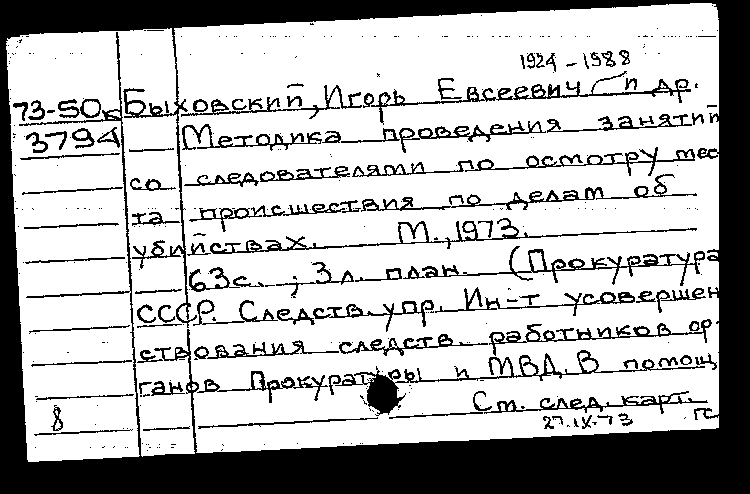 1924 - 1988
73-50к Быховский, Игорь Евсеевич и др.
3794 Методика проведения занятий
со следователями по осмотру мес
та происшествия по делам об
убийствах. М., 1973.
63с.; 3л. план. (Прокуратура
СССР. Следств. упр. Ин-т усовершен
ствования следств. работников ор-
ганов Прокуратуры и МВД. В помощ
8 Ст. след. карт.
27.IX-73 ГС